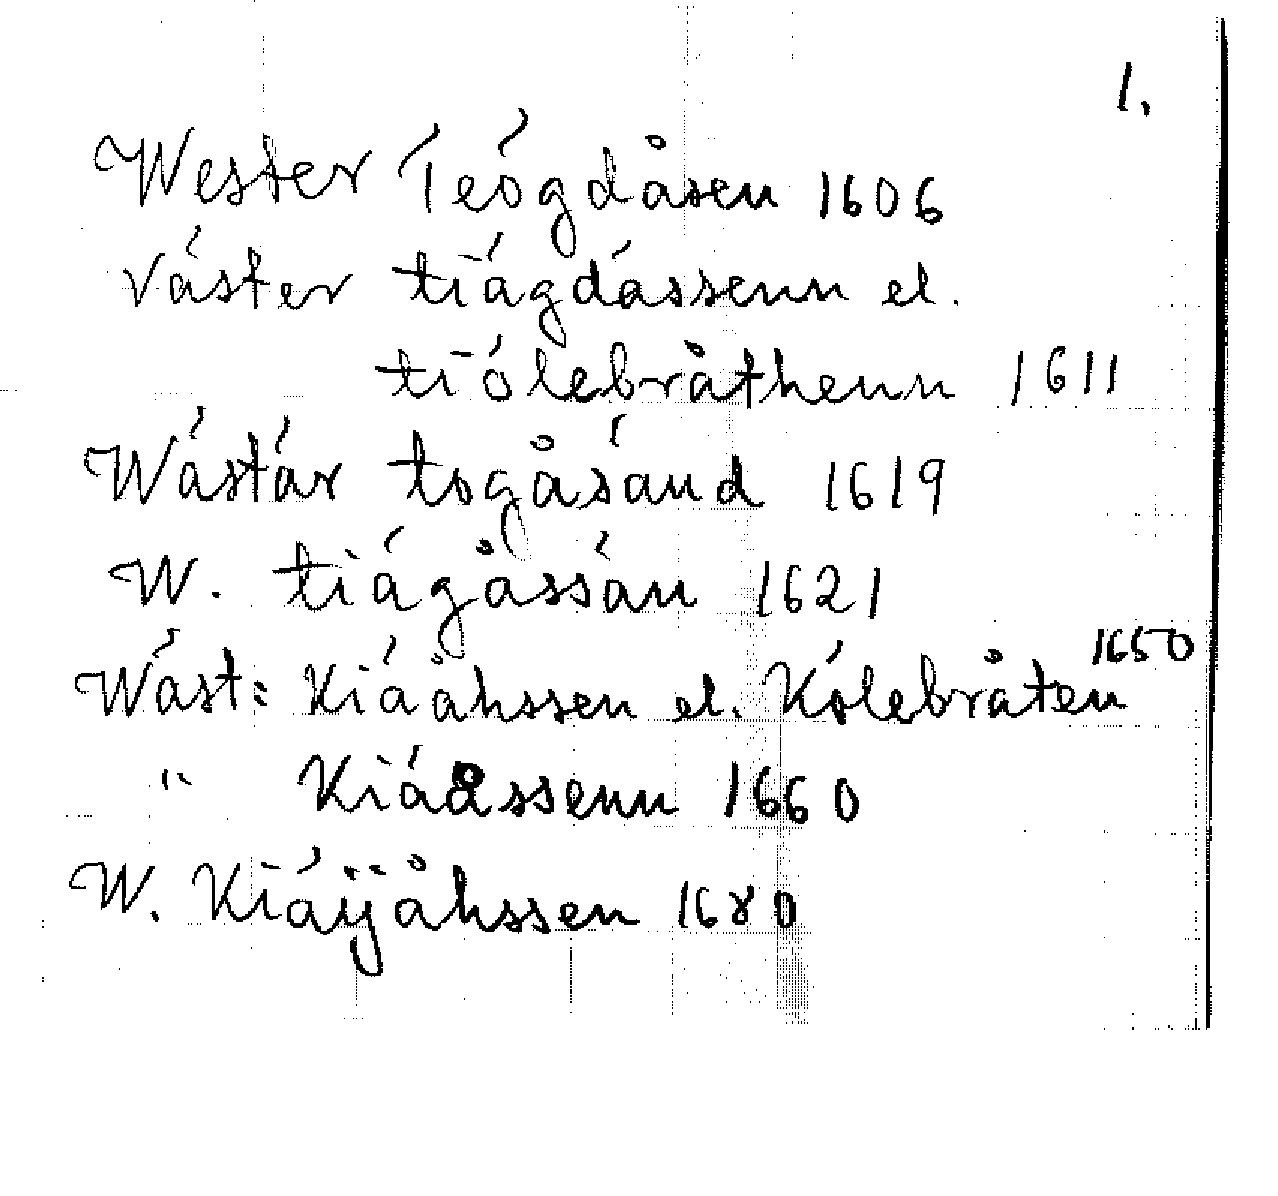 1.
Wester Teógdåsen 1606
Váster tiágdássenn el.
tiólebråthenn 1611
Wástár togåsánd 1619
W. tiágåssán 1621
Wást: Kiáåhssen el. Kólebråten 1650
" Kiáåssenn 1660
W. Kiáijåhssen 1680